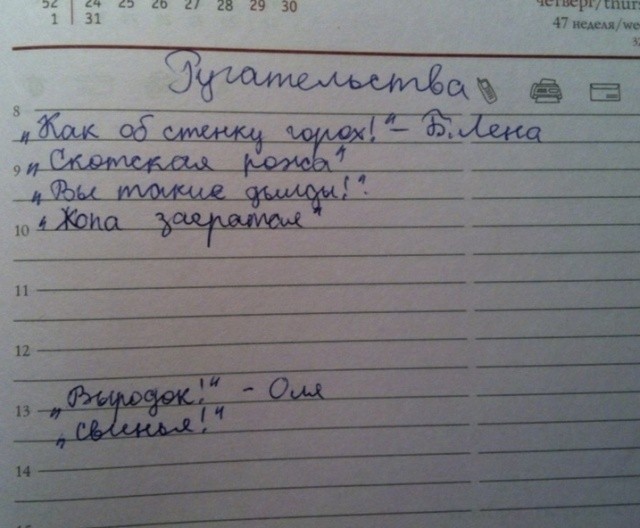 52 24 25 26 27 28 29 30
1 31
четверг/thurs
47 неделя/we
Ругательства
8
„Как об стенку горох!“ – Б. Лена
9 „Скотская рожа“
„Вы такие дылды!“
10 „Жопа засратая“
11
12
„Выродок!“ - Оля
13
„Свинья!“
14